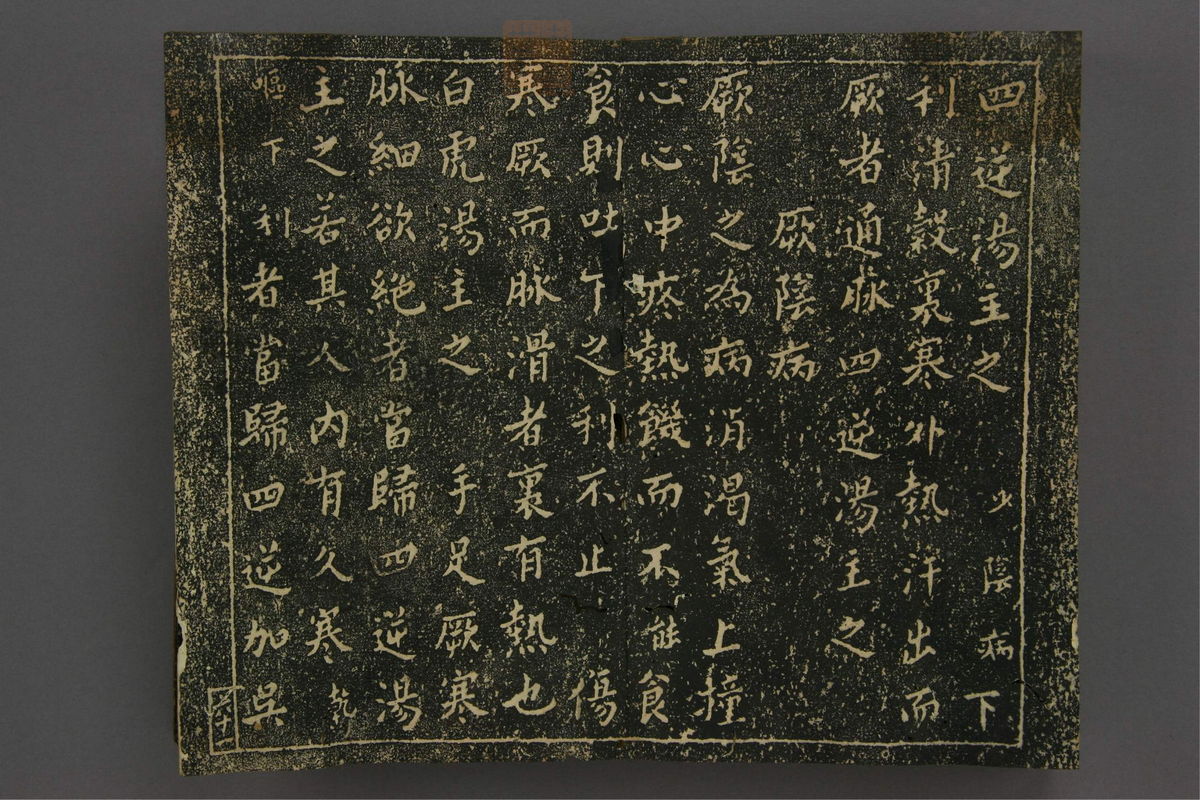 四逆湯主之少陰病下
利清穀裏寒外熱汗出而
厥者通脉四逆湯主之
厥陰病
厥陰之為病消渴氣上撞
心心中疼熱饑而不能食
食則吐下之利不止傷
寒厥而脉滑者裏有熱也
白虎湯主之手足厥寒
脉細欲絕者當歸四逆湯
主之若其人內有久寒
嘔下利者當歸四逆加吳